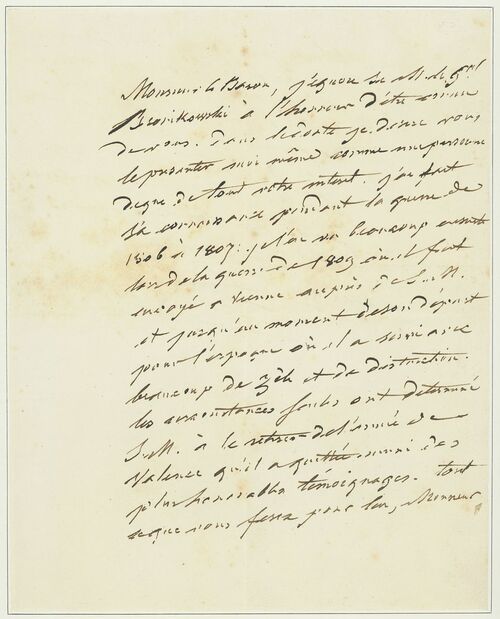 Monsieur le Baron, j'ignore si M. le Gal
Bronikowski à l'honneur d'être connu
de vous. Dans le doute je desire vous
le presenter moi même comme une personne
digne de tout votre interet. j'ai fait
sa connoissance pendant la guerre de
1806 à 1807. je l'ai vu beaucoup
lors de la guerre de 1809 où il fut
envoyé a vienne auprès de S. M.
et jusqu'au moment de son départ
pour l'espagne où il a servi avec
beaucoup de zèle et de distinction.
les circonstances seules ont determiné
S. M. à le retirer de l'armée de
Valence qu'il a quittée muni des
plus honorables témoignages. tout
ce que vous ferez pour lui, Monsieur